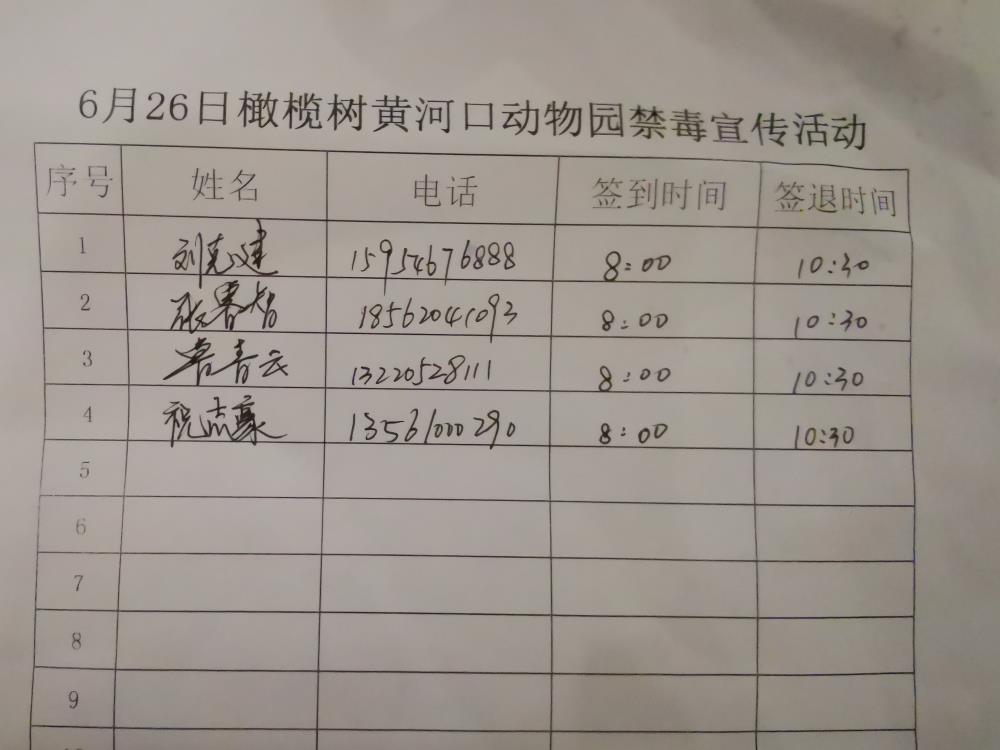 6月26日橄榄树黄河口动物园禁毒宣传活动
序号 姓名 电话 签到时间 签退时间
1 刘克建 15954676888 8:00 10:30
2 张春智 18562041093 8:00 10:30
3 青云 13220528111 8:00 10:30
4 祝志豪 13561000290 8:00 10:30
5
6
7
8
9